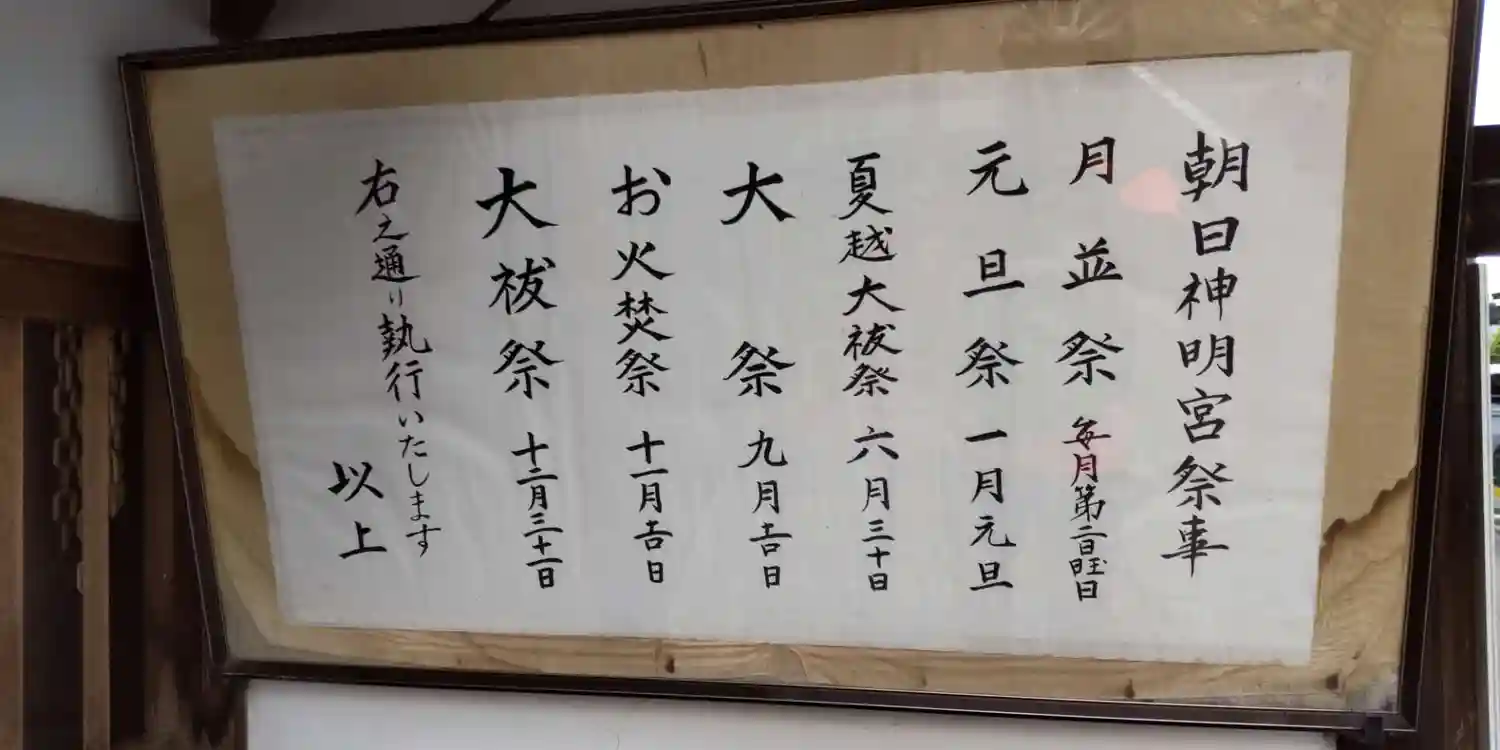 朝日神明宮祭事
月並祭 毎月第二日曜日
元旦祭 一月元旦
夏越大祓祭 六月三十日
大祭 九月吉日
お火焚祭 十一月吉日
大祓祭 十二月三十一日
右之通り執行いたします
以上